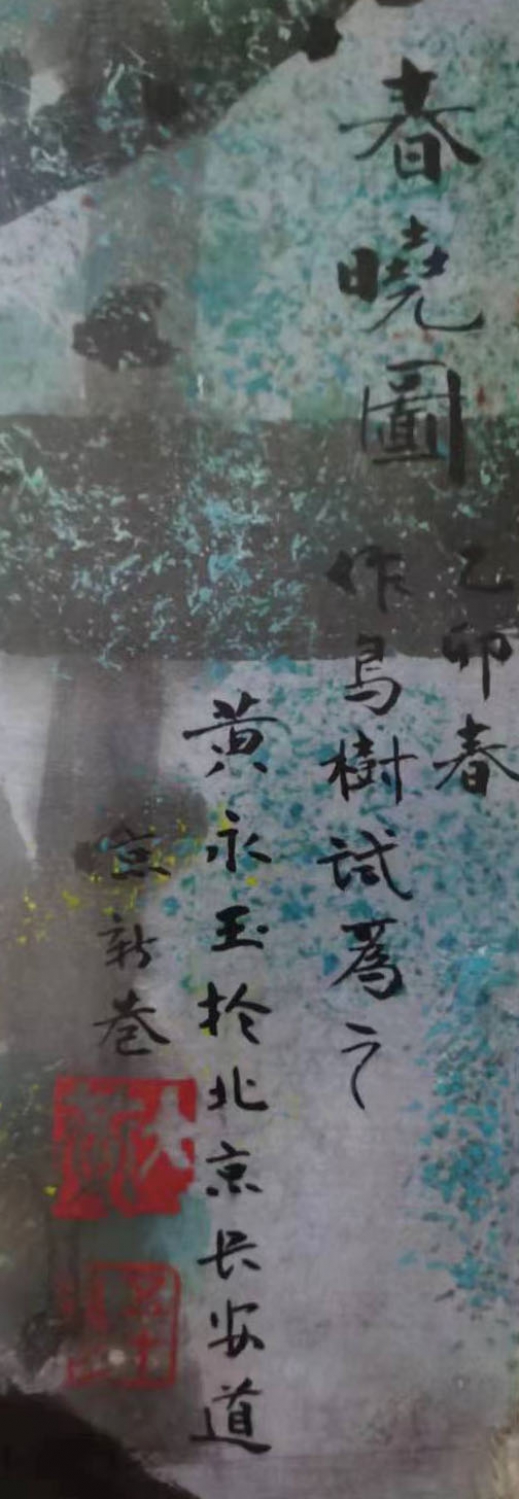 春曉圖
乙卯春
作鳥樹試為之
黃永玉於北京長安道
京新巷